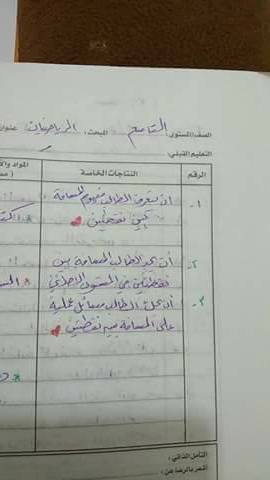 الصف/المستوى: التاسع المبحث: الرياضيات عنوان
التعليم القبلي:
الرقم النتاجات الخاصة المواد والأ
١- أن يتعرف الطالب مفهوم المسافة
بين نقطتين
٢- أن يجد الطالب المسافة بين
نقطتين في المستوى الإحداثي
٣- أن يحل الطالب مسائل عملية
على المسافة بين نقطتين
التأمل الذاتي:
أشعر بالرضا عن: